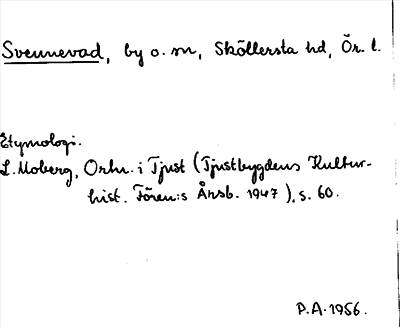 Svennevad, by o. sn, Sköllersta hd, Ör. l.
Etymologi.
L. Moberg, Ortn. i Tjust (Tjustbygdens Kultur-
hist. Fören:s Årsb. 1947), s. 60.
P.A. 1956.